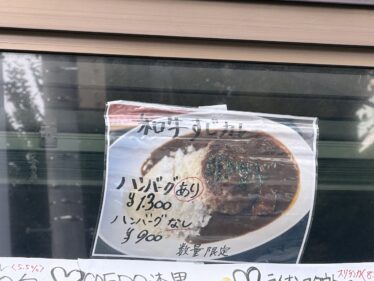 和牛すじカレー
ハンバーグあり
¥1.300
ハンバーグなし
¥900
数量限定